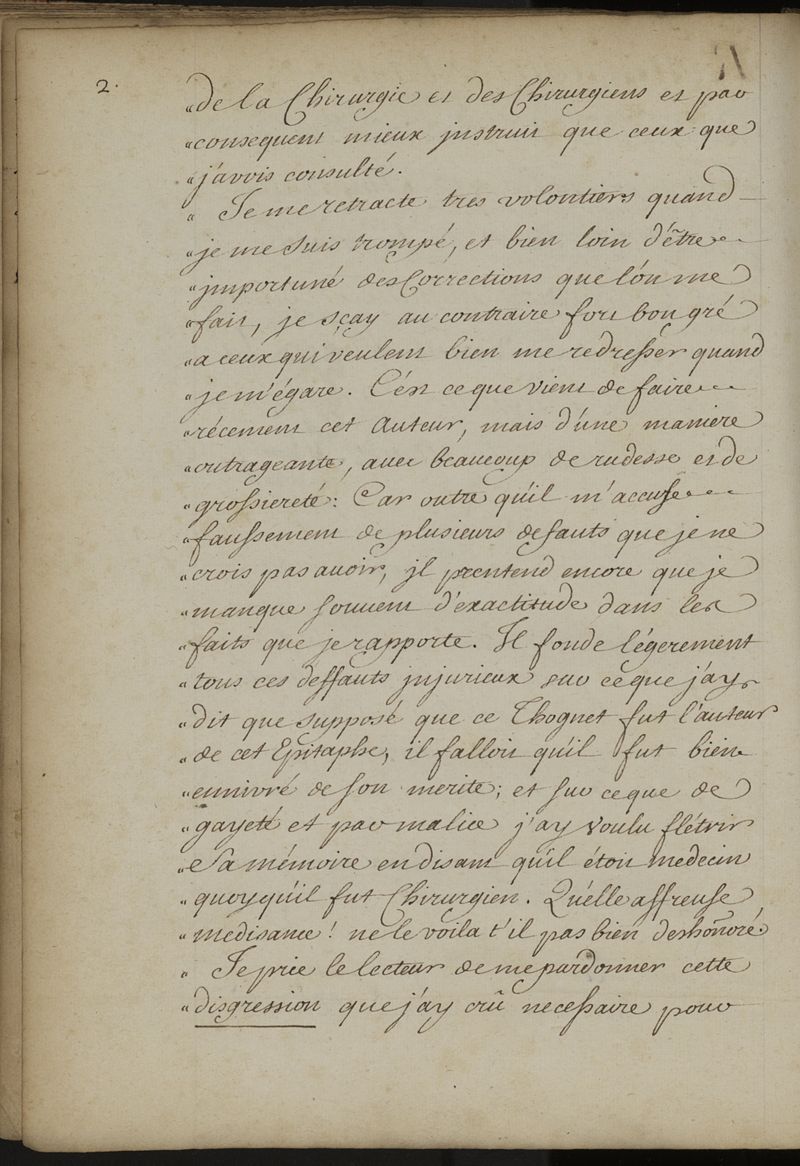 2.
"de la Chirurgie et des Chirurgiens et par
"consequent mieux jnstruit que ceux que
"j'avois consulté.
" Je me retracte tres volontiers quand
"je me suis trompé, et bien loin d'être
"jmportuné des Corrections que l'on me
"fait, je sçay au contraire fort bon gré
"a ceux qui veulent bien me redresser quand
"je m'égare. C'est ce que vient de faire
"récement cet Auteur, mais d'une maniere
"outrageante, avec beaucoup de rudesse et de
"grossiereté: Car outre qu'il m'accuse
"faussement de plusieurs defauts que je ne
"crois pas avoir, jl prentend encore que je
"manque souvent d'exactitude dans les
"faits que je rapporte. Il fonde légerement
"tous ces deffauts jnjurieux sur ce que j'ay
"dit que supposé que ce Thognet fut l'auteur
"de cet Epitaphe, il falloit qu'il fut bien
"ennivré de son merite; et sur ce que de
"gayeté et par malice j'ay voulu flétrir
"sa mémoire en disant qu'il étoit medecin
"quoyqu'il fut Chirurgien. Qu'elle affreuse
"medisance! ne le voila t'il pas bien deshonoré.
" Je prie le lecteur de me pardonner cette
"disgression que j'ay crû necessaire pour